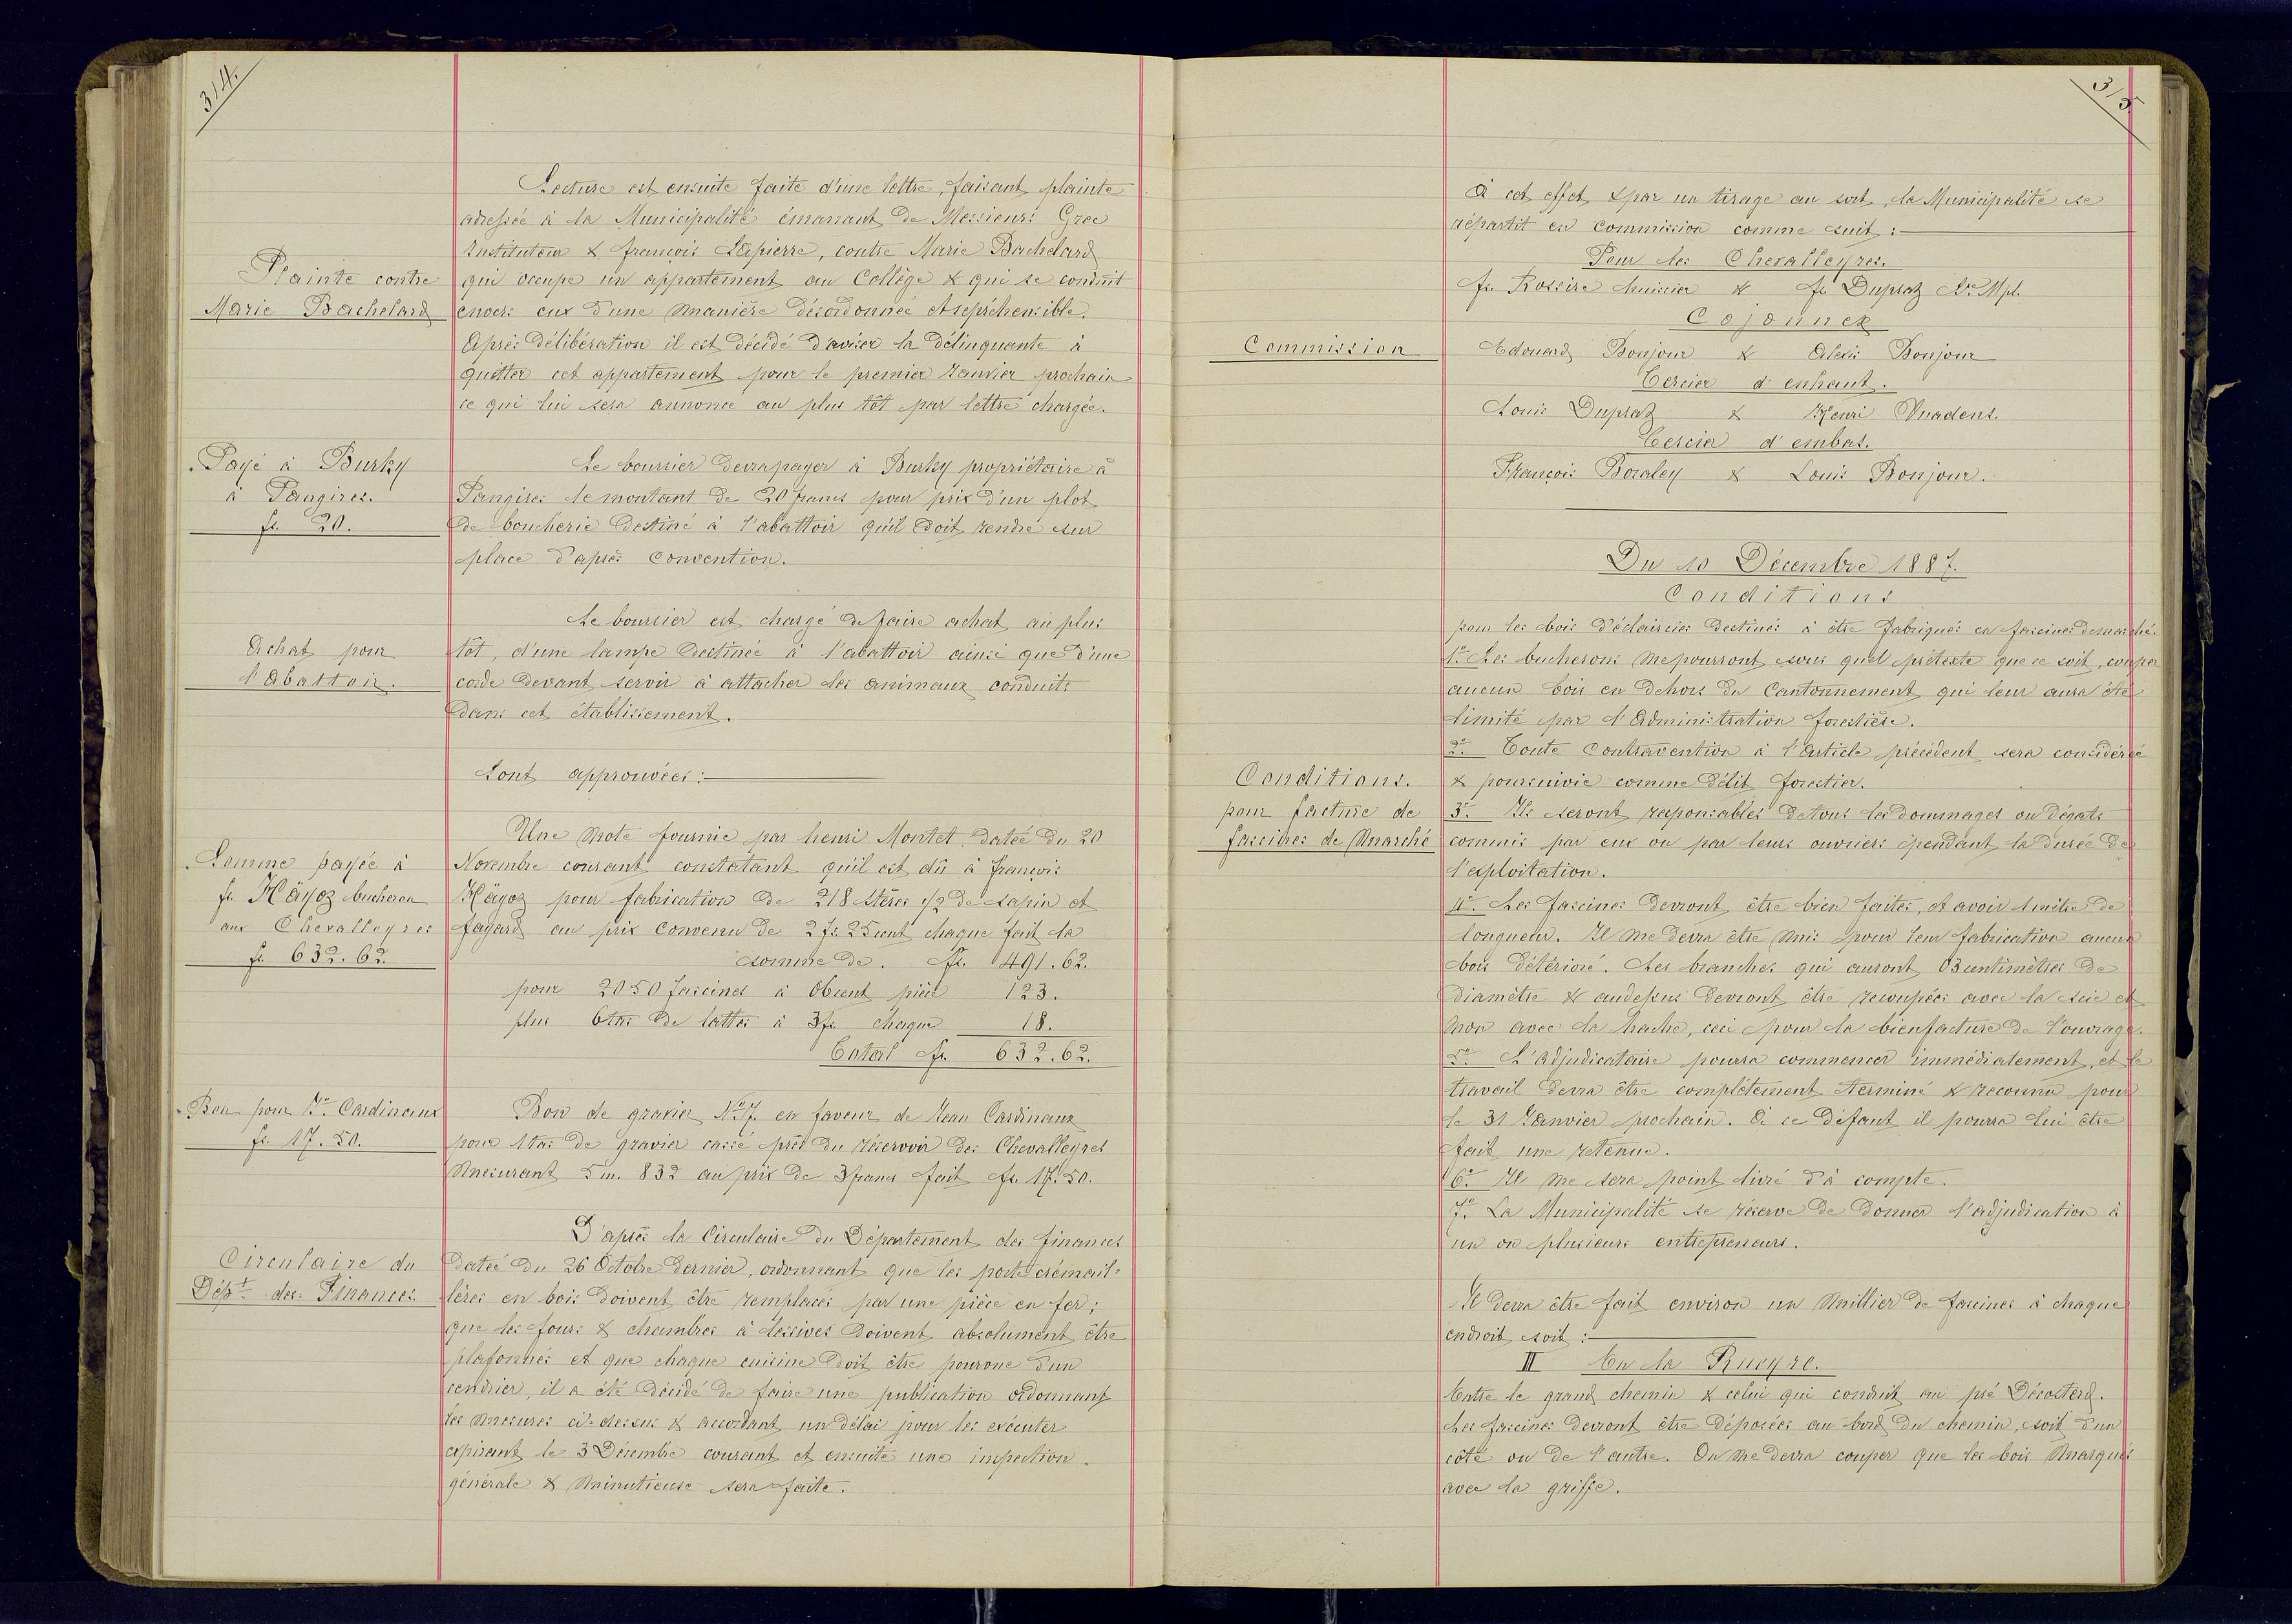 314.
Lecture est ensuite faite d'une lettre, faisant plainte
adressée à la Municipalité émanant de Messieurs Grec
Instituteur & françois Lapierre, contre Marie Bachelard
Plainte contre
Marie Bachelard
qui occupe un appartement au Collège & qui se conduit
envers eux d'une manière désordonnée et repréhensible.
Après délibération il est décidé d'aviser la délinquante à
quitter cet appartement pour le premier Janvier prochain
ce qui lui sera annoncé au plus tôt par lettre chargée.
Payé à Burky
à Tangires.
fr. 20.
Le boursier devra payer à Burky propriétaire à
Tangires le montant de 20 francs pour prix d'un plot
de boucherie destiné à l'abattoir qu'il doit rendre sur
place d'après convention.
Achat pour
l'Abattoir.
Le boursier est chargé de faire achat au plus
tôt, d'une lampe destinée à l'abattoir ainsi que d'une
corde devant servir à attacher les animaux conduits
dans cet établissement.
Sont approuvées :
Somme payée à
fs. Häyoz bucheron
aux Chevalleyres
fr. 632.62.
Une note fournie par henri Montet datée du 20
Novembre courant constatant qu'il est dû à françois
Häyoz pour fabrication de 218 stères 1/2 de sapin et
fayard au prix convenu de 2 fr. 25 cent chaque fait la
somme de . fr. 491.62.
pour 2050 fascines à 06 cent pièce 123.
plus 6 tas de lattes à 3 fr. chaque 18.
Total fr. 632.62.
Bon pour Jn. Cardinaux
fr. 17.50.
Bon de gravier No. 7. en faveur de Jean Cardinaux
pour 1 tas de gravier cassé près du réservoir des Chevalleyres
mesurant 5 m. 832 au prix de 3 francs fait fr. 17.50.
Circulaire du
Dépt. des Finances.
D'après la Circulaire du Département des finances
datée du 26 Octobre dernier, ordonnant que les porte crémail-
lères en bois doivent être remplacés par une pièce en fer ;
que les fours & chambres à lessives doivent absolument être
plafonnés et que chaque cuisine doit être pourvue d'un
cendrier, il a été décidé de faire une publication ordonnant
les mesures ci-dessus & accordant un délai pour les exécuter
expirant le 3 Décembre courant et ensuite une inspection
générale & minutieuse sera faite.
315
A cet effet & par un tirage au sort, la Municipalité se
répartit en commission comme suit :
Pour les Chevalleyres.
fs. Rossire huissier & fs. Dupraz Mpl.
Cojonnex
Commission
Edouard Bonjour & Alexis Bonjour
Tercier d'enhaut.
Louis Dupraz & Henri Vuadens.
Tercier d'embas.
François Boraley & Louis Bonjour.
Du 10 Décembre 1887.
Conditions
pour les bois d'éclaircies destinés à être fabriqués en fascines de marché.
1o. Les bucherons ne pourront, sous quel prétexte que ce soit, couper
aucun bois en dehors du Cantonnement qui leur aura été
limité par l'Administration forestière.
2o. Toute Contravention à l'article précédent sera considérée
& poursuivie comme délit forestier.
Conditions.
pour facture de
fascines de Marché
3o. Ils seront responsables de tous les dommages ou dégats
commis par eux ou par leurs ouvriers pendant la durée de
l'exploitation.
4o. Les fascines devront être bien faites, et avoir 1 mètre de
longueur. Il ne devra être mis pour leur fabrication aucun
bois détérioré. Les branches qui auront 03 centimètres de
diamètre & audessus devront être recoupées avec la scie et
non avec la hache, ceci pour la bienfacture de l'ouvrage.
5o. L'adjudicataire pourra commencer immédiatement, et le
travail devra être complètement terminé & reconnu pour
le 31 Janvier prochain. A ce défaut il pourra lui être
fait une retenue.
6o. Il ne sera point livré d'à compte.
7o. La Municipalité se réserve de donner l'adjudication à
un ou plusieurs entrepreneurs.
Il devra être fait environ un millier de fascines à chaque
endroit soit :
III En la Rueyre.
Entre le grand chemin & celui qui conduit au pré Décosterd.
Les fascines devront être déposées au bord du chemin, soit d'un
côté ou de l'autre. On ne devra couper que les bois marqués
avec la griffe.